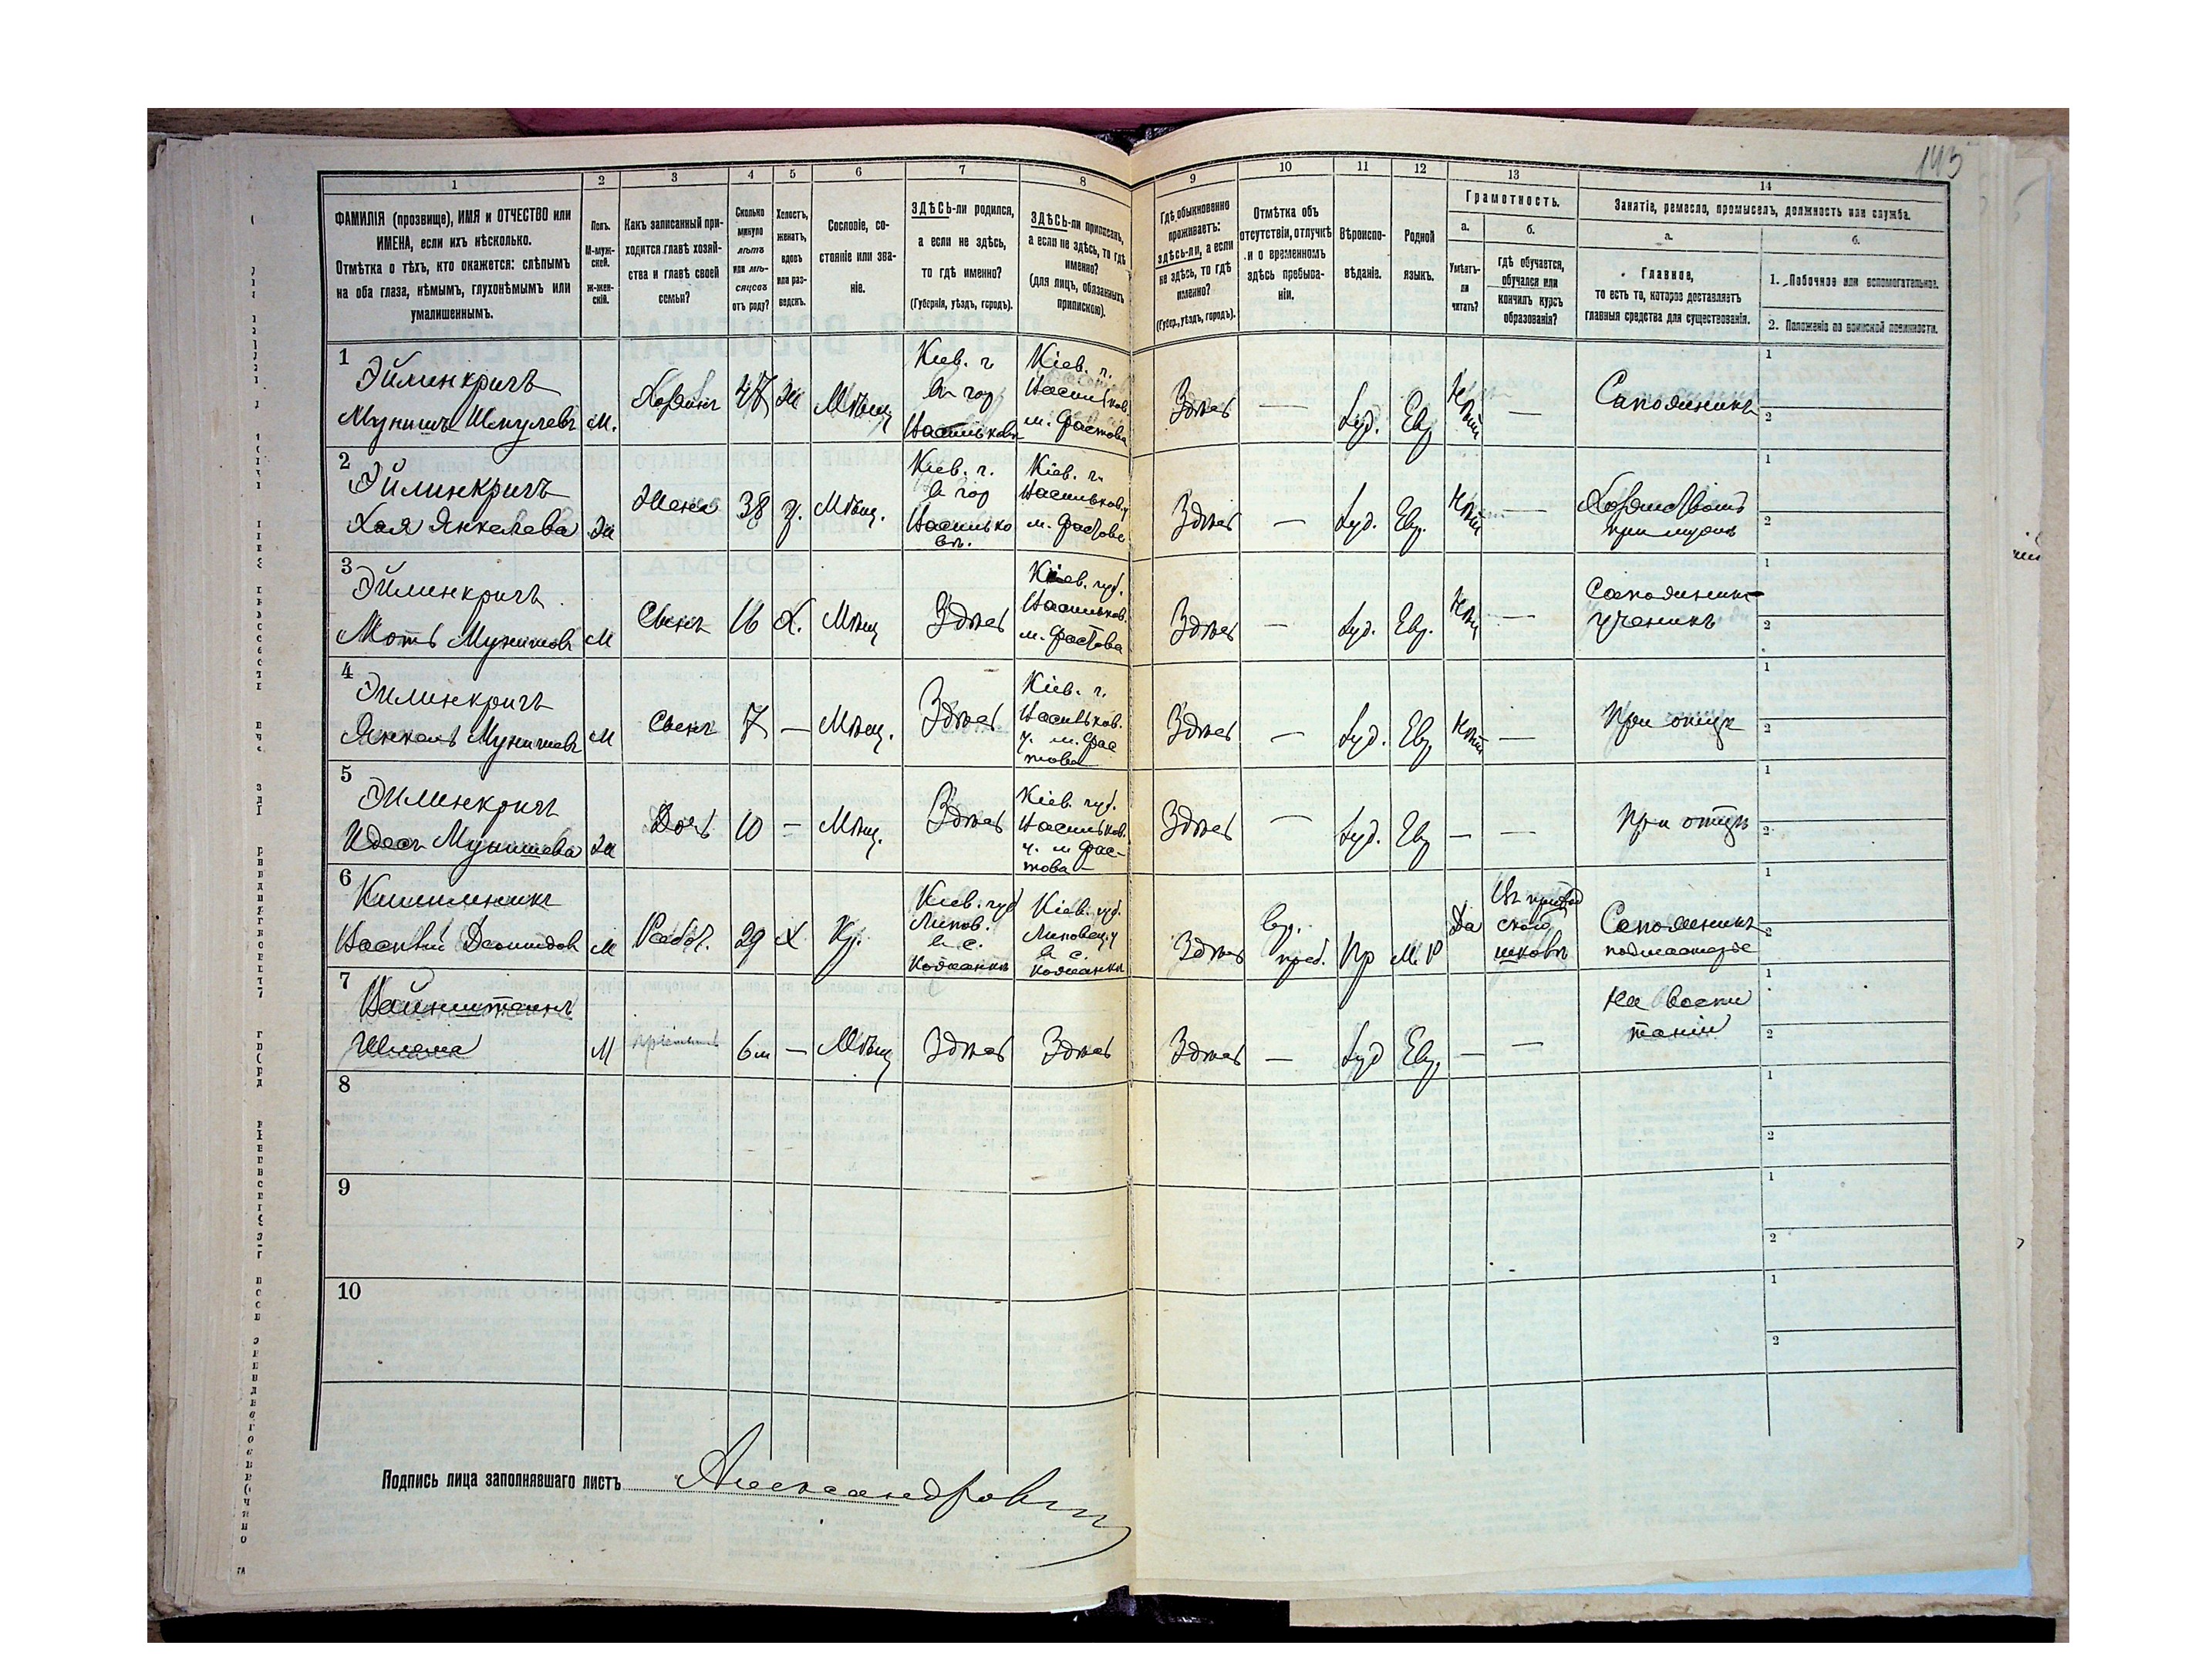 143
1 2 3 4 5 6 7 8 9 10 11 12 13 14
ФАМИЛІЯ (прозвище), ИМЯ и ОТЧЕСТВО или
ИМЕНА, если ихъ нѣсколько.
Отмѣтка о тѣхъ, кто окажется: слѣпымъ
на оба глаза, нѣмымъ, глухонѣмымъ или
умалишеннымъ.
Полъ.
М-муж-
ской.
ж-жен-
скій.
Какъ записанный при-
ходится главѣ хозяй-
ства и главѣ своей
семьи?
Сколько
минуло
лѣтъ
или мѣ-
сяцевъ
отъ роду?
Холостъ,
женатъ,
вдовъ
или раз-
веденъ.
Сословіе, со-
стояніе или зва-
ніе.
ЗДѢСЬ-ли родился,
а если не здѣсь,
то гдѣ именно?
(Губернія, уѣздъ, городъ).
ЗДѢСЬ-ли приписанъ,
а если не здѣсь, то гдѣ
именно?
(для лицъ, обязанныхъ
припискою).
Гдѣ обыкновенно
проживаетъ:
здѣсь-ли, а если
не здѣсь, то гдѣ
именно?
(Губер., уѣздъ, городъ).
Отмѣтка объ
отсутствіи, отлучкѣ
и о временномъ
здѣсь пребыва-
ніи.
Вѣроиспо-
вѣданіе.
Родной
языкъ.
Грамотность.
а.
Умѣетъ-
ли
читать?
б.
гдѣ обучается,
обучался или
кончилъ курсъ
образованія?
Занятіе, ремесло, промыселъ, должность или служба.
а.
Главное,
то есть то, которое доставляетъ
главныя средства для существованія.
б.
1. Побочное или вспомогательное.
2. Положеніе по воинской повинности.
1
Эйлинкричъ
Мунишъ Шмулевъ М. Хозяинъ 47 Ж Мѣщ
Кіев. г.
в гор
Васильковѣ
Кіев. г.
Васильков.
м. Фастова
Здѣсь — Іуд. Евр Нѣт — Сапожникъ
1
2
2
Эйлинкричъ
Хая Янкелева Ж Жена 38 З. Мѣщ.
Кіев. г.
в гор
Василько
вѣ.
Кіев. г.
Васильков. у
м. Фастова
Здѣсь — Іуд. Евр. Нѣт —
при мужѣ
1
2
3
Эйлинкричъ
Моть Мунишовъ М Сынъ 16 Х. Мѣщ Здѣсь
Кіев. губ.
Васильков.
м. Фастова
Здѣсь — Іуд. Евр. Нѣт —
Сапожник-
ученикъ
1
2
4
Эйлинкричъ
Янкель Мунишевъ М Сынъ 7 — Мѣщ. Здѣсь
Кіев. г.
Васильков.
у. м. Фас
това
Здѣсь — Іуд. Евр Нѣт — При отцѣ
1
2
5
Эйлинкричъ
Идесъ Мунишева Ж Дочь 10 — Мѣщ. Здѣсь
Кіев. губ.
Васильков.
у. м Фас-
това
Здѣсь — Іуд. Евр — — При отцѣ
1
2
6
Василій М Работ. 29 Х Кр.
Кіев. губ
Липов.
в с.
Кожанкѣ
Кіев. губ.
Липовец. у
в с.
Кожанкѣ
Здѣсь
Вр.
преб.
Пр М. Р Да
Сапожникъ
подмастерье
1
2
7
Вайнштейнъ
Шлема М 6 м — Мѣщ Здѣсь Здѣсь Здѣсь — Іуд Евр. — —
на воспи
таніи
1
2
8
1
2
9
1
2
10
1
2
Подпись лица заполнявшаго листъ